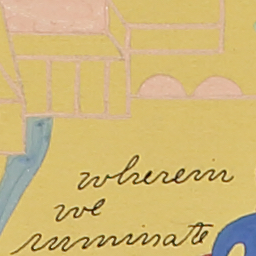 wherein
we
ruminate